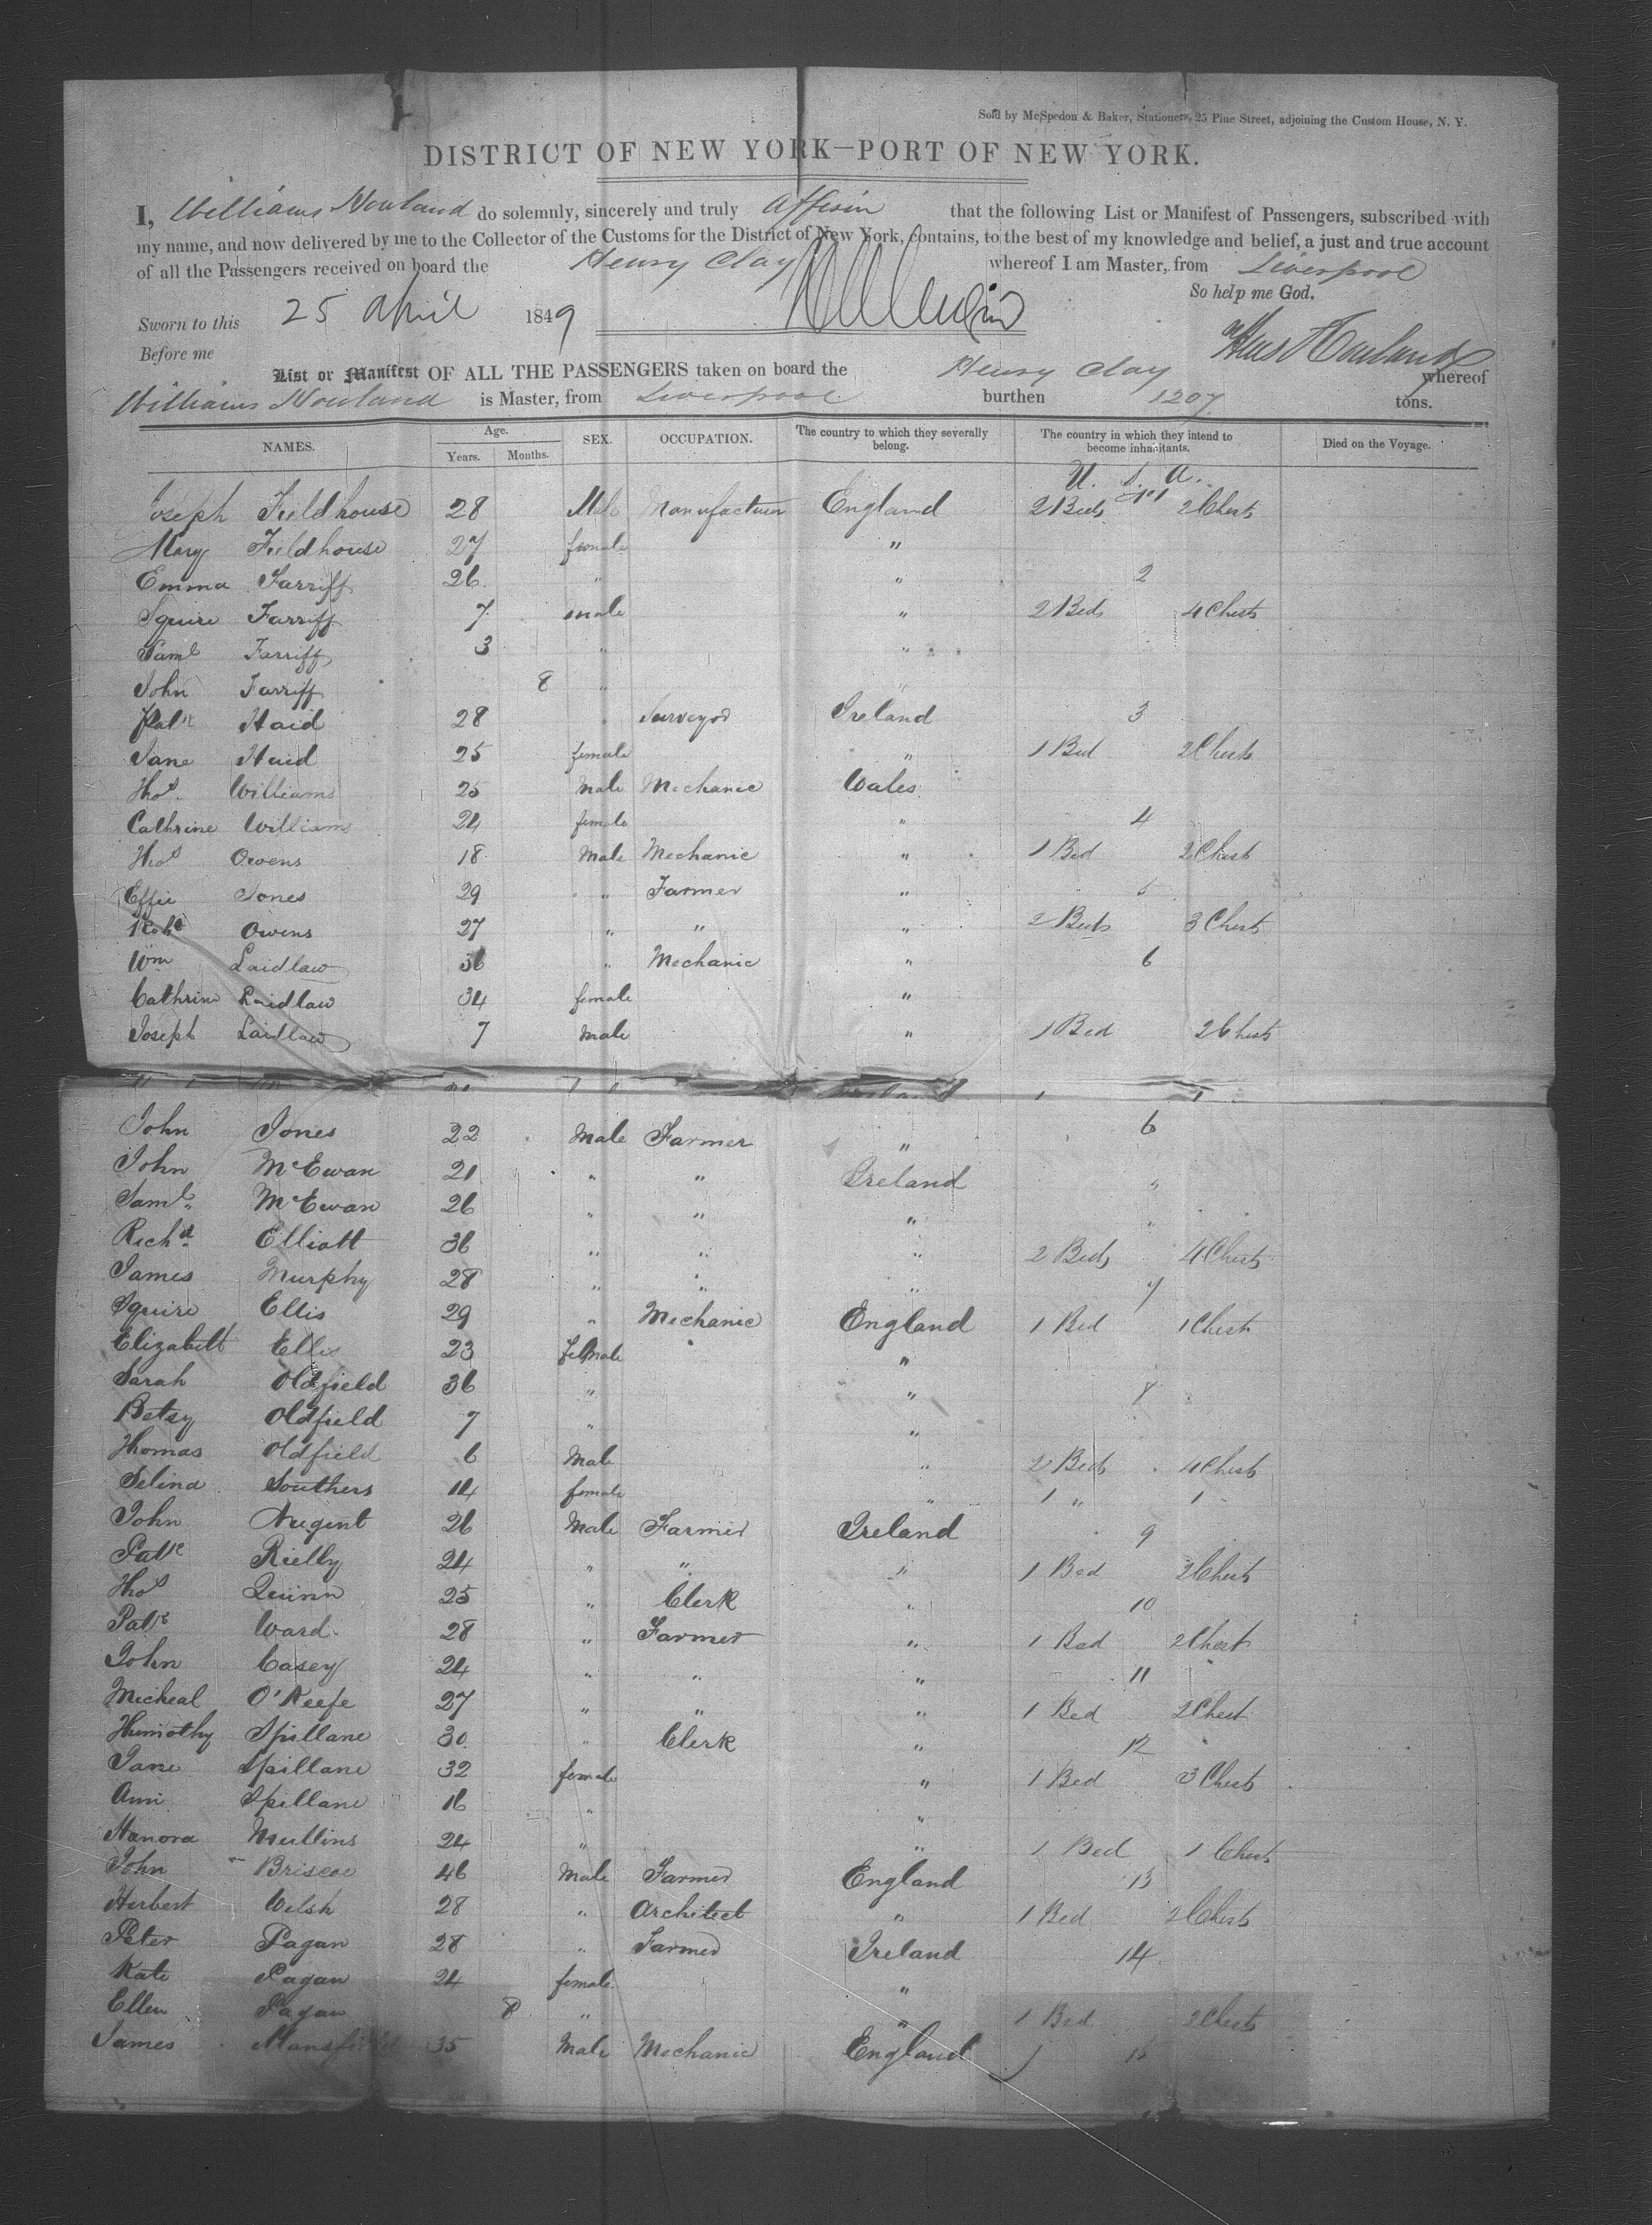 Sold by McSpedon & Baker, Stationers, 25 Pine Street, adjoining the Custom House, N. Y.
DISTRICT OF NEW YORK—PORT OF NEW YORK.
I, Williams Howland do solemnly, sincerely and truly Affirm that the following List or Manifest of Passengers, subscribed with
my name, and now delivered by me to the Collector of the Customs for the District of New York, contains, to the best of my knowledge and belief, a just and true account
of all the Passengers received on board the Henry Clay whereof I am Master, from Liverpool
So help me God.
Sworn to this 25 April 1849
Before me
Howland
List or Manifest OF ALL THE PASSENGERS taken on board the Henry Clay whereof
Williams Howland is Master, from Liverpool burthen 1207 tons.
NAMES. Age. Years. Months. SEX. OCCUPATION. The country to which they severally belong. The country in which they intend to become inhabitants. Died on the Voyage.
U. S. A.
Joseph Fieldhouse 28 Male Manufacturer England 2 Beds 2 Chests
Mary Fieldhouse 27 female "
Emma Farriff 26 " " 2
Squire Farriff 7 male " 2 Beds 4 Chests
Saml Farriff 3 " "
John Farriff 8 " "
Patk Haid 28 " Surveyor Ireland 3
Jane Haid 25 female " 1 Bed 2 Chests
Thos Williams 25 Male Mechanic Wales
Cathrine Williams 24 female " 4
Thos Owens 18 Male Mechanic " 1 Bed 2 Chest
Effie Jones 29 " Farmer " 5
Robt Owens 27 " " " 2 Beds 3 Chests
Wm Laidlaw 36 " Mechanic " 6
Cathrine Laidlaw 34 female "
Joseph Laidlaw 7 Male " 1 Bed 2 Chests
John Jones 22 Male Farmer " 6
John McEwan 21 " " Ireland "
Saml McEwan 26 " " " "
Richd Elliott 36 " " " 2 Beds 4 Chests
James Murphy 28 " " " 7
Squire Ellis 29 " Mechanic England 1 Bed 1 Chest
Elizabeth Ellis 23 female "
Sarah Oldfield 36 " " 8
Betsy Oldfield 7 " "
Thomas Oldfield 6 Male " 2 Beds 4 Chests
Selina Southers 14 female " 1 " 1
John Nugent 26 Male Farmer Ireland 9
Patk Rielly 24 " " " 1 Bed 2 Chests
Thos Quinn 25 " Clerk " 10
Patk Ward 28 " Farmer " 1 Bed 2 Chest
John Casey 24 " " " 11
Micheal O'Keefe 27 " " " 1 Bed 2 Chest
Thimothy Spillane 30 " Clerk " 12
Jane Spillane 32 female " 1 Bed 3 Chests
Ann Spillane 16 " "
Hanora Mullins 24 " " 1 Bed 1 Chest
John Briscoe 46 Male Farmer England 13
Herbert Welsh 28 " Architect " 1 Bed 2 Chests
Peter Pagan 28 " Farmer Ireland 14
Kate Pagan 24 female "
Ellen Pagan 8 " " 1 Bed 2 Chests
James Mansfield 35 Male Mechanic England 15